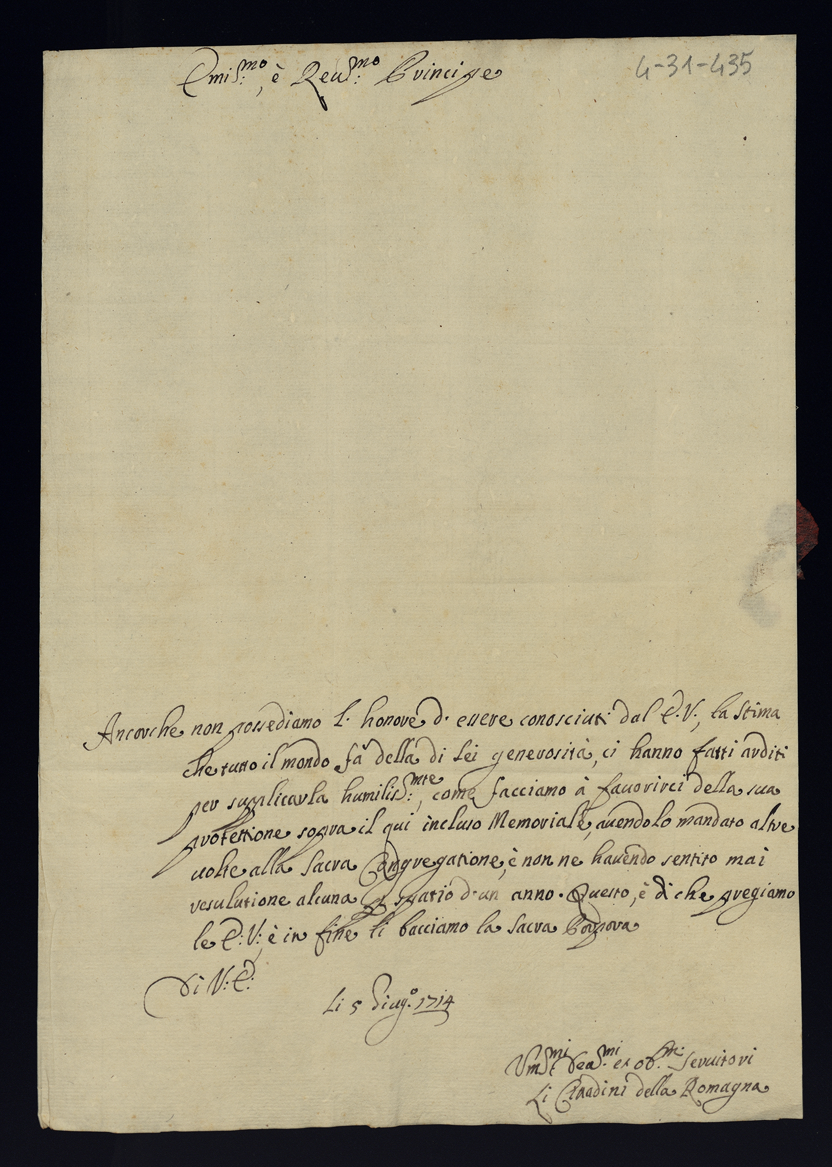 Emiss.mo, è Reuss.mo Principe
4-31-435
Ancorche non possediamo l'honore d'essere conosciuti dal E.V:, la stima
che tutto il mondo fà della di lei generosità, ci hanno fatti arditi
per supplicarla humiliss:mte, come facciamo à fauorirci della sua
protettione sopra il qui incluso Memoriale, auendolo mandato altre
uolte alla sacra Congregatione, è non ne hauendo sentito mai
resulutione alcuna p spatio d'un anno. Questo, è di che pregiamo
le E:V:, è in fine li bacciamo la sacra Porpora
Di V:E:
Li 5 Giug.o 1714
Um.mi deu.mi et ob.mi seruitori
Li Cittadini della Romagna